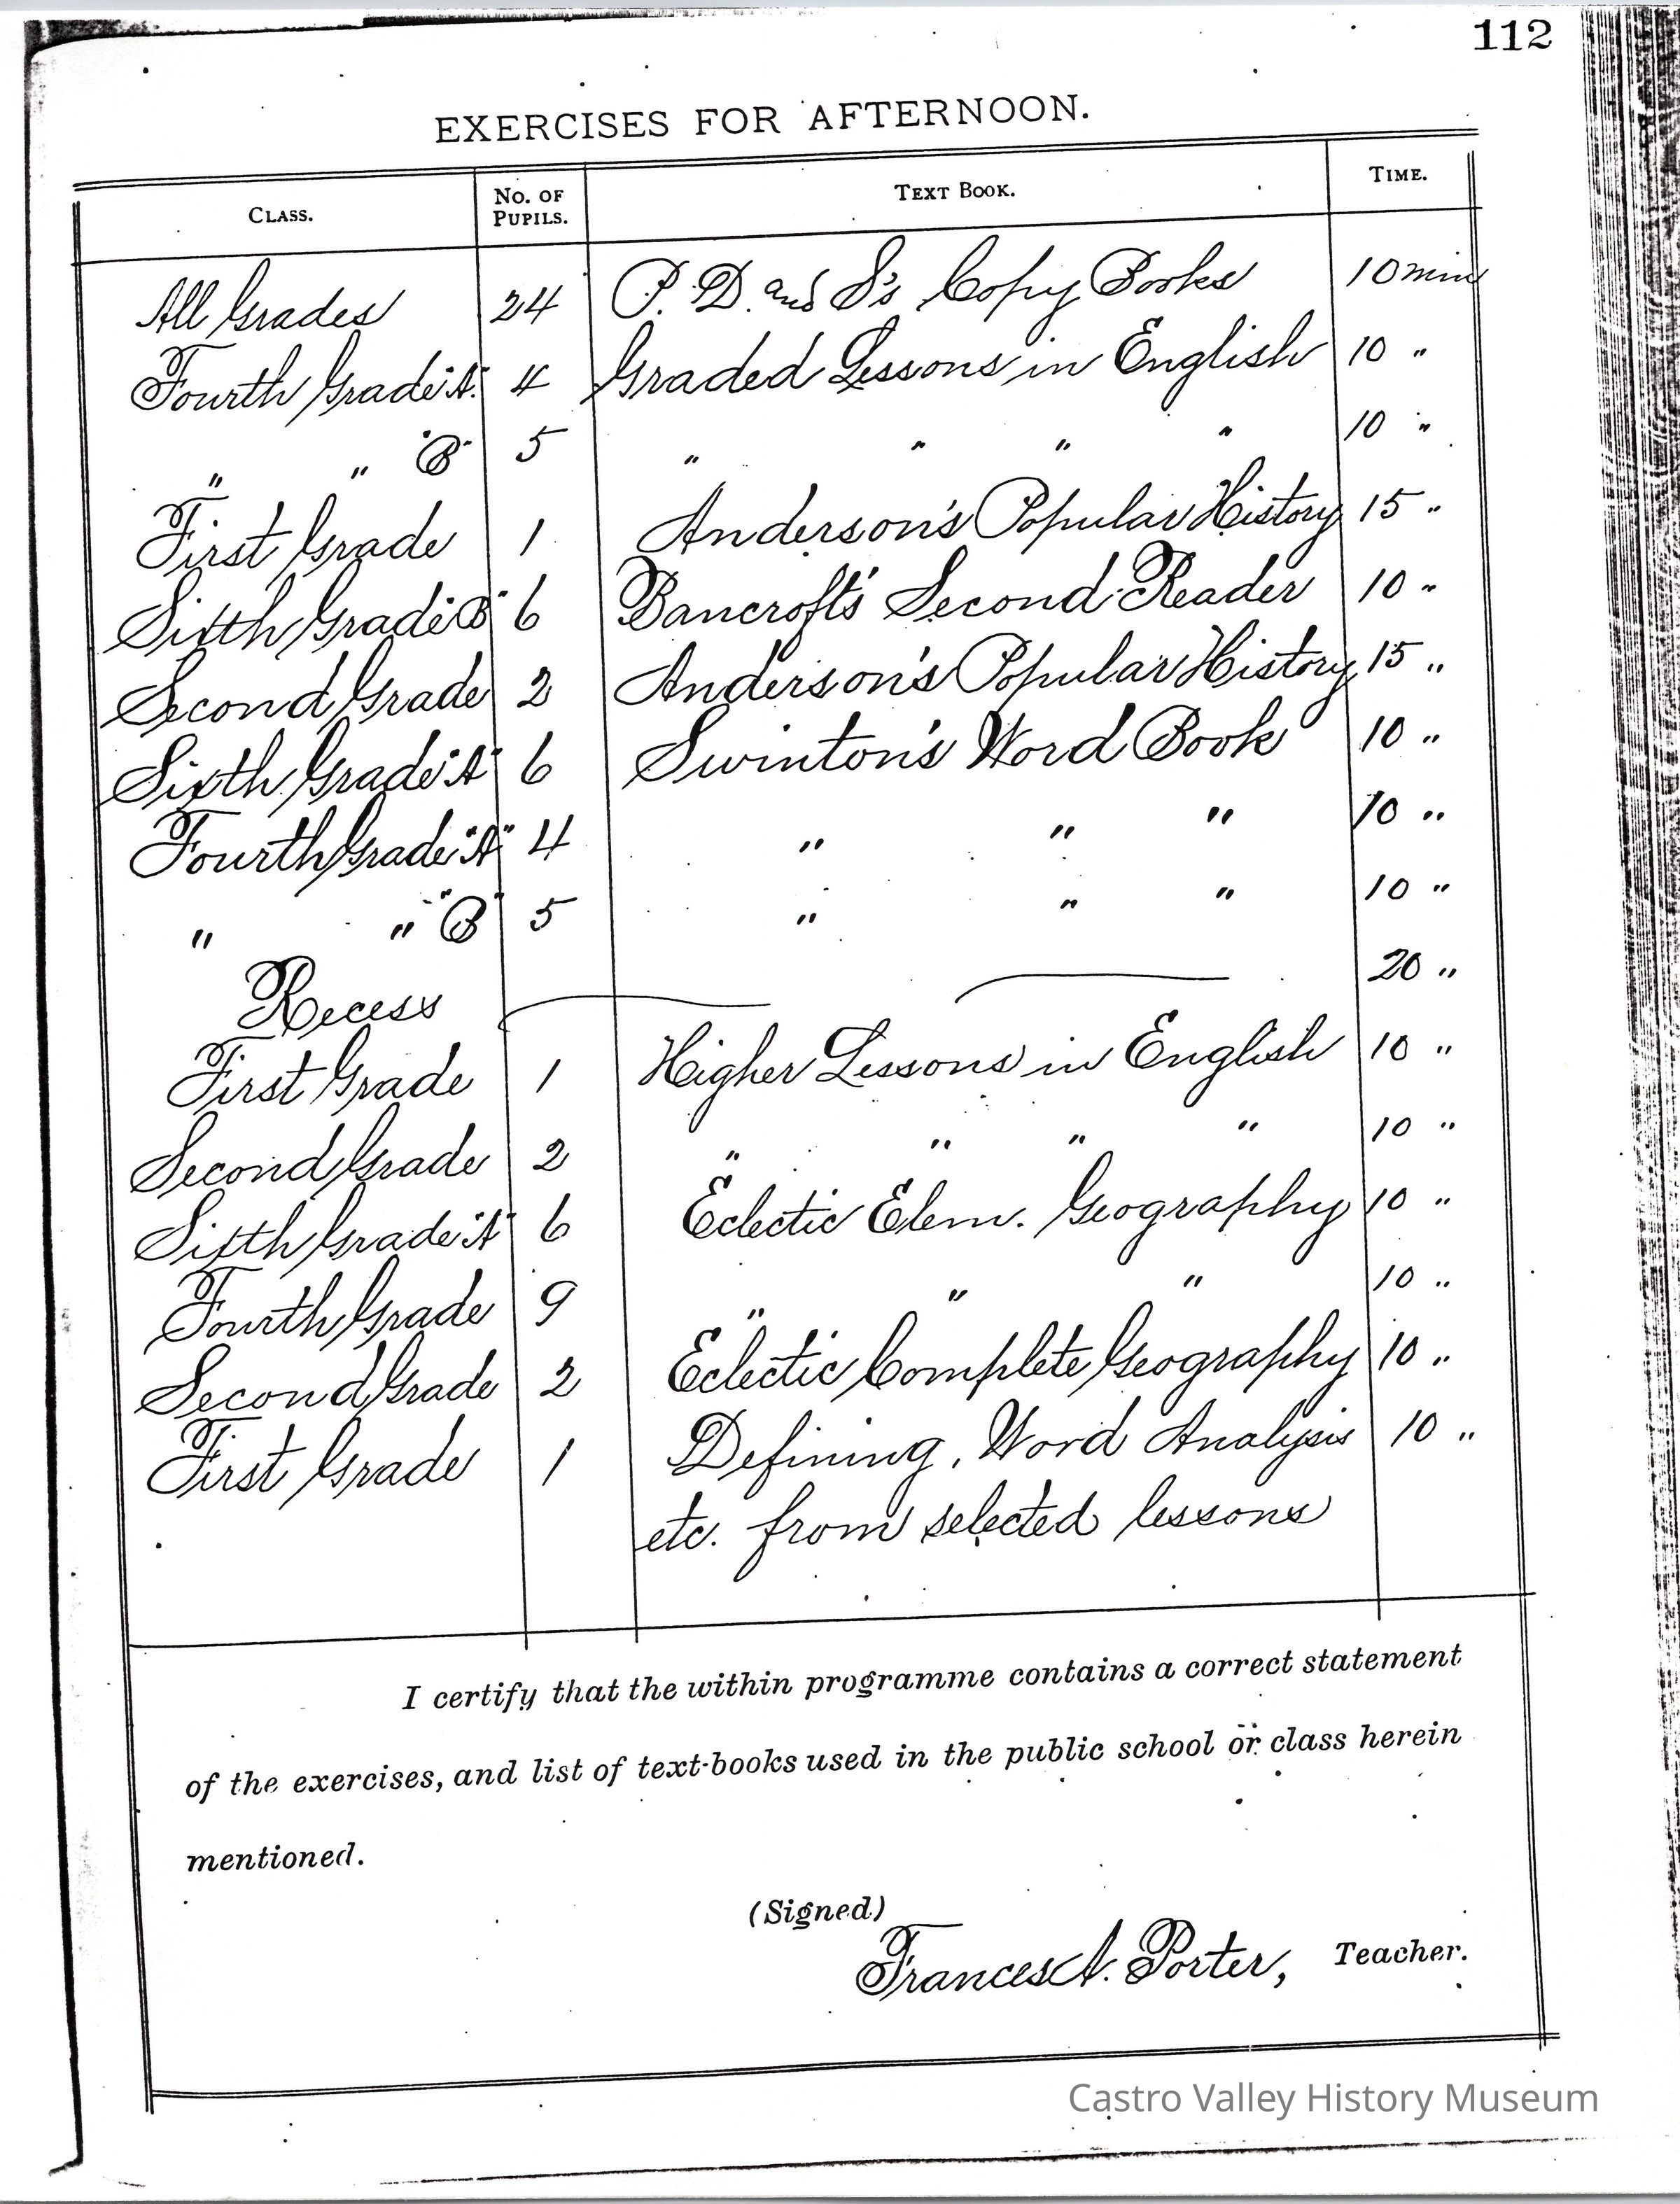 112
EXERCISES FOR AFTERNOON.
CLASS. No. OF PUPILS. TEXT BOOK. TIME.
All Grades 24 P. D. and S's Copy Books 10 min
Fourth Grade "A" 4 Graded Lessons in English 10 "
" " "B" 5 " " " " 10 "
First Grade 1 Anderson's Popular History 15 "
Sixth Grade "B" 6 Bancroft's Second Reader 10 "
Second Grade 2 Anderson's Popular History 15 "
Sixth Grade "A" 6 Swinton's Word Book 10 "
Fourth Grade "A" 4 " " " 10 "
" " "B" 5 " " " 10 "
Recess 20 "
First Grade 1 Higher Lessons in English 10 "
Second Grade 2 " " " " 10 "
Sixth Grade "A" 6 Eclectic Elem. Geography 10 "
Fourth Grade 9 " " " 10 "
Second Grade 2 Eclectic Complete Geography 10 "
First Grade 1 Defining, Word Analysis 10 "
etc. from selected lessons
I certify that the within programme contains a correct statement
of the exercises, and list of text-books used in the public school or class herein
mentioned.
(Signed)
Frances A. Porter, Teacher.
Castro Valley History Museum